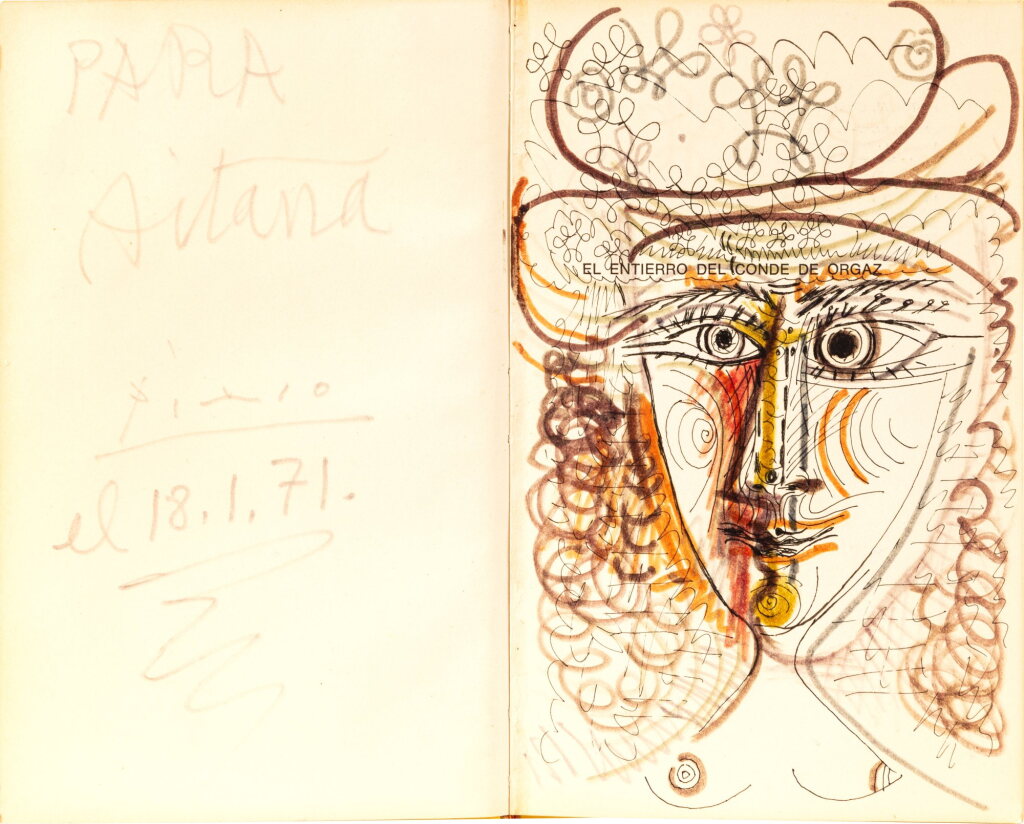 PARA
Aitana
Picasso
el 18.1.71.
EL ENTIERRO DEL CONDE DE ORGAZ